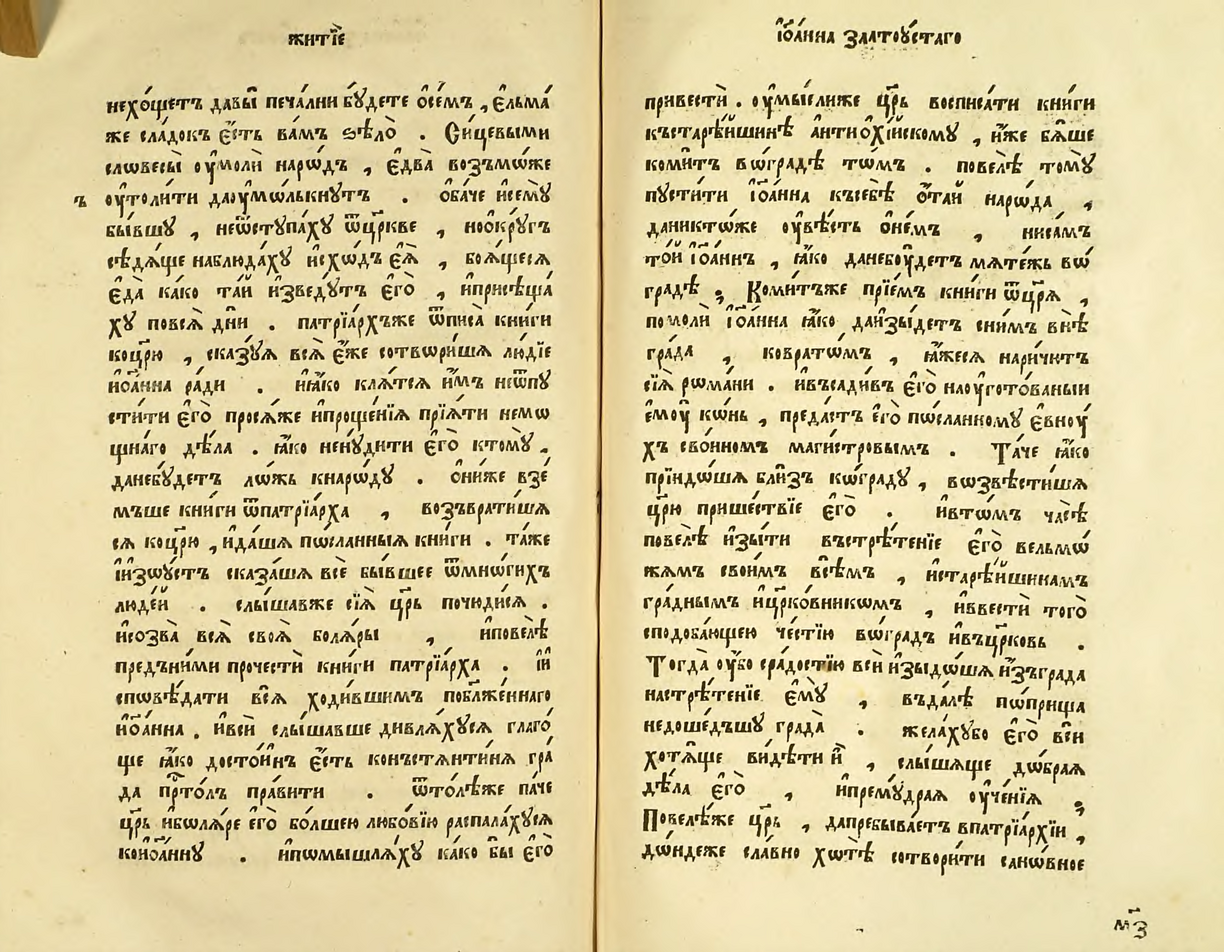 житїе
нехо́щетъ давы̀ печа́лни бꙋ́дете ѻ҆се́мъ , є҆льма́
же сла́докъ є҆́сть ва́мъ ѕѣло̀ . Си́цевыми
слѡвесы̀ ᲂу҆молѝ наро́дъ , є҆два̀ возъмѡ́же
ᲂу҆толи́ти даᲂу҆мѡ́лькнꙋтъ . ѻ҆ба́че и҆семꙋ̀
бы́вшꙋ , неѿстꙋпа́хꙋ ѿцр҃кве , ноѻ҆́крꙋгъ
сѣдѧ́ще наблюда́хꙋ и҆схѡ́дъ є҆ѧ̀ , боѧ́щесѧ
є҆да̀ ка́ко та́й и҆зведꙋ́тъ є҆го̀ , и҆присѣща́
хꙋ повсѧ̀ дн҃и . патрїа́рхъже ѿписа̀ кни́ги
коцр҃ю , ска́зꙋѧ всѧ̀ є҆́же сотвори́шѧ лю́дїе
и҆ѡа́нна ра́ди . и҆ꙗ҆́ко клѧ́тсѧ и҆́мъ неѿпꙋ
сти́ти є҆го̀ просѧ́же и҆проще́нїѧ прїѧ́ти немѡ
щна́го дѣ́ла . ꙗ҆́ко ненꙋ́дити є҆го̀ ктомꙋ̀ ,
данебꙋ́детъ лѡ́жь кнарѡ́дꙋ . ѻ҆ни́же взе́
мъше кни́ги ѿпатрїа́рха , возъврати́шѧ
сѧ коцр҃ю , и҆да́шѧ пѡ́сланныѧ кни́ги . та́же
и҆и҆зѡꙋ́стъ сказа́шѧ всѐ бы́вшее ѿмнѡ́гихъ
люде́й . слы́шавже сїѧ̀ цр҃ь почюди́сѧ .
и҆созва̀ всѧ̀ своѧ̀ болѧ́ры , и҆повелѣ̀
предъни́ми прочестѝ кни́ги патрїа́рха . и҆и҆
спѡвѣ́дати всѧ̀ ходи́вшимъ побл҃же́ннаго
и҆ѡа́нна . и҆всѝ слы́шавше дивлѧ́хꙋсѧ глаго́
ще ꙗ҆́ко досто́инъ є҆́сть конъстѧнти́нѧ гра́
да пр҇то́лъ пра́вити . ѿто́лѣже па́че
цр҃ь и҆бѡлѧ́ре є҆го̀ бо́лшею любо́вїю распала́хꙋсѧ
коиѡа́ннꙋ . и҆пѡмышлѧ́хꙋ ка́ко бы є҆го̀
ъ
і҆ѡа́нна златоꙋ́стаго
привестѝ . ᲂу҆мы́слиже цр҃ь восписа́ти кни́ги
къстарѣ́йшинѣ а҆нтиѻхі́йскомꙋ , и҆́же бѧ́ше
коми́тъ вѡгра́дѣ то́мъ . повелѣ̀ томꙋ̀
пꙋсти́ти і҆ѡа́нна късебѣ̀ ѻ҆та́й нарѡ́да ,
даникто́же ᲂу҆вѣ́сть ѻ҆не́мъ , ниса́мъ
то́й і҆ѡа́ннъ , ꙗ҆́ко данебоу́детъ мѧте́жь вѡ
гра́дѣ , Коми́тъже прїе́мъ кни́ги ѿцр҃ѧ ,
помолѝ і҆ѡа́нна ꙗ҆́ко даи҆зы́детъ сни́мъ внѣ̀
гра́да , ковратѡ́мъ , ꙗ҆́жесѧ нари́чютъ
сїѧ̀ рѡма́ни . и҆въсади́въ є҆го̀ наоу҆гото́ваныи
є҆моу̀ кѡ́нь , преда́стъ є҆го̀ пѡ́сланномꙋ є҆вноу́
хъ сво́иномъ маги́стровымъ . Та́че ꙗ҆́ко
прїидѡ́шѧ бли́зъ кѡгра́дꙋ , вѡзвѣсти́шѧ
цр҃ю прише́ствїе є҆го̀ . и҆втѡ́мъ ча́сѣ
повелѣ̀ и҆зы́ти въстрѣ́тенїе є҆го̀ вельмѡ́
жѧмъ свои́мъ всѣ́мъ , и҆старѣ́йшинамъ
гра́днымъ и҆цр҃ко́вникѡмъ , и҆ввестѝ того̀
сподоба́ющею че́стїю вѡгра́дъ и҆въцр҃ковь .
Тогда̀ ᲂу҆́бо сра́достїю всѝ и҆зыдѡ́шѧ и҆зъгра́да
настрѣ́тенїе є҆мꙋ̀ , въда́лѣ пѡ́прища
недоше́дъшꙋ гра́да . жела́хꙋбо є҆го̀ всѝ
хотѧ́ще ви́дѣти и҆̀ , слы́шѧще дѡ́браѧ
дѣ́ла є҆го̀ , и҆премꙋ́драѧ ᲂу҆че́нїѧ ,
Повелѣ́же цр҃ь , дапребыва́етъ впатрїа́рхїи ,
до́ндеже сла́вно хѡтѣ̀ сотвори́ти санѡ́вное
м҃з